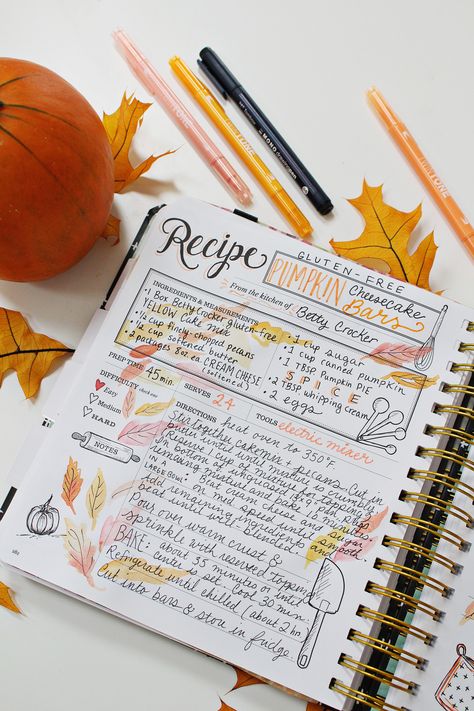 Recipe
GLUTEN-FREE
PUMPKIN Cheesecake
Bars
From the kitchen of Betty Crocker
INGREDIENTS & MEASUREMENTS
• 1 Box Betty Crocker gluten-free
YELLOW Cake mix
• ½ cup finely chopped pecans
• ½ cup softened butter
• 2 packages 8oz ea CREAM CHEESE
(softened)
• 1 cup sugar
• 1 cup canned pumpkin
• 1 TBSP Pumpkin PIE
SPICE
• 2 TBSP. whipping cream
• 2 eggs
PREP TIME 45 min
SERVES 24
TOOLS electric mixer
DIFFICULTY check one
Easy
Medium
HARD
NOTES
DIRECTIONS heat oven to 350°F
Stir together cake mix + pecans. Cut in
butter until mixture is crumbly.
Reserve 1 cup of mixture for topping.
remaining mixture and bake
LARGE BOWL: Beat cream cheese and sugar
on med speed until smooth.
Add remaining ingredients
beat until well blended.
Pour over warm crust &
sprinkle with reserved topping
BAKE: about 35 minutes or until
center is set. Cool 30 min.
Refrigerate until chilled (about 2 hr)
Cut into bars & store in fridge